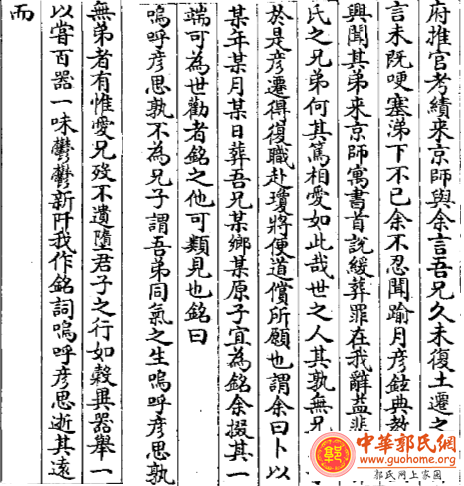 府推官考績來京師與余言吾兄久未復土遷之
言未既哽塞涕下不已余不忍聞踰月彦鉉典教
興聞其弟來京師寓書首說緩葬罪在我辭益悲
氏之兄弟何其篤相愛如此哉世之人其孰無兄
於是彦遷得復職赴瓊將便道償所願也謂余曰卜以
某年某月某日葬吾兄某鄉某原子宜為銘余掇其一
端可為世勸者銘之他可類見也銘曰
嗚呼彦思孰不為兄子謂吾弟同氣之生嗚呼彦思孰
無弟者有惟愛兄歿不遺墮君子之行如穀異器舉一
以嘗百器一味鬱鬱新阡我作銘詞嗚呼彦思逝其遠
而
中華郭氏網
www.guohome.org
郭氏网上家園